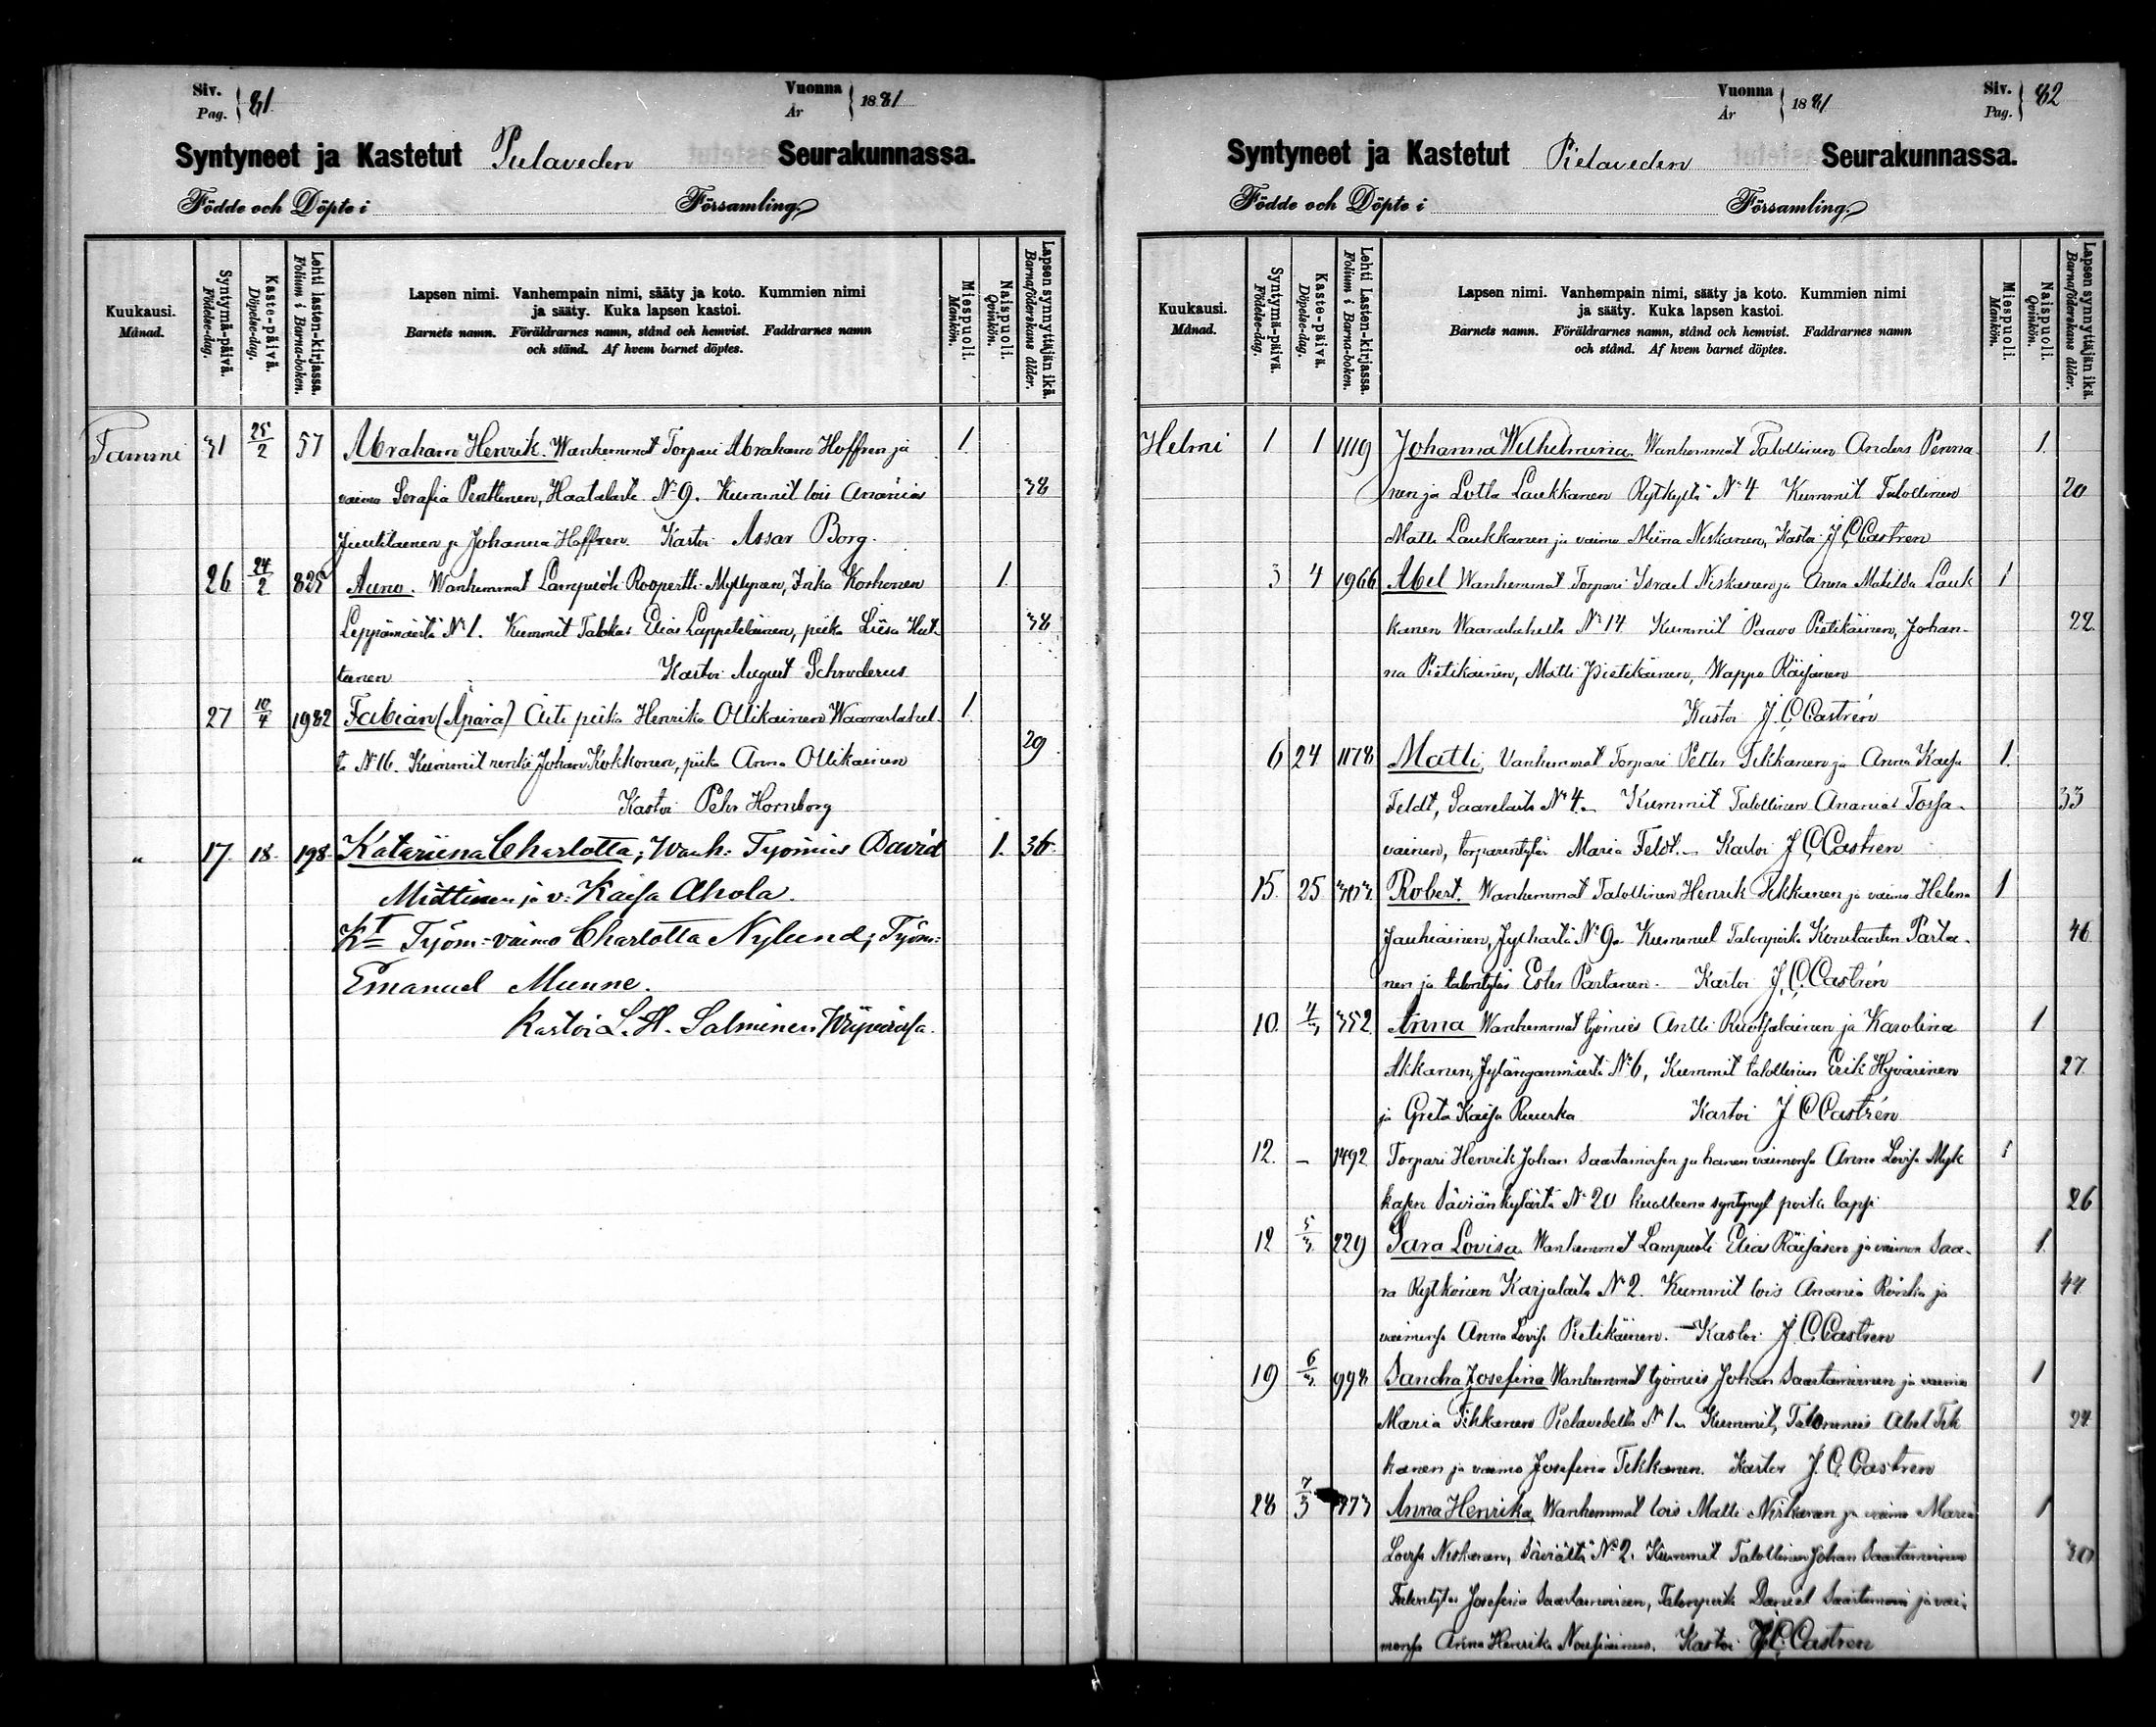 Siv. Pag. 81
Vuonna År 1881
Syntyneet ja Kastetut Pielaveden Seurakunnassa.
Födde och Döpte i Församling.
Kuukausi. Månad.
Syntymä-päivä. Födelse-dag.
Kaste-päivä. Döpelse-dag.
Lehti lasten-kirjassa. Folium i Barna-boken.
Lapsen nimi. Vanhempain nimi, sääty ja koto. Kummien nimi
ja sääty. Kuka lapsen kastoi.
Barnets namn. Föräldrarnes namn, stånd och hemvist. Faddrarnes namn
och stånd. Af hvem barnet döptes.
Miespuoli. Mankön.
Naispuoli. Qvinkön.
Lapsen synnyttäjän ikä. Barnaföderskans ålder.
Tammi 31 25/2 57 Abraham Henrik. Wanhemmat Torpari Abraham Hoffren ja 1.
vaimo Serafia Penttinen, Haatalasta No 9. Kummit lois Anania 38
Juutilainen ja Johanna Hoffren. Kastoi Assar Borg.
26 24/2 825 Auno. Wanhemmat Lampuoti Roopertti Myllynen, Inka Korhonen 1.
Leppämäestä No 1. Kummit Talokas Elias Lappeteläinen, piika Liisa Hut- 38
tunen Kastoi August Schroderus
27 10/4 1982 Fabian (Äpärä) Äiti piika Henrika Ollikainen Waaraslahel- 1.
ta No 16. Kummit renki Johan Kokkonen, piika Anna Ollikainen 29
Kastoi Petr Hornborg
" 17. 18. 198. Katariina Charlotta; Wanh: Työmies David 1. 36.
Miettinen ja v: Kaisa Ahola.
Kt Työm=vaimo Charlotta Nylund; Työm:
Emanuel Munne.
Kastoi L. H. Salminen Wiipurissa.
Vuonna År 1881
Siv. Pag. 82
Syntyneet ja Kastetut Pielaveden Seurakunnassa.
Födde och Döpte i Församling.
Kuukausi. Månad.
Syntymä-päivä. Födelse-dag.
Kaste-päivä. Döpelse-dag.
Lehti Lasten-kirjassa. Folium i Barna-boken.
Lapsen nimi. Vanhempain nimi, sääty ja koto. Kummien nimi
ja sääty. Kuka lapsen kastoi.
Barnets namn. Föräldrarnes namn, stånd och hemvist. Faddrarnes namn
och stånd. Af hvem barnet döptes.
Miespuoli. Mankön.
Naispuoli. Qvinkön.
Lapsen synnyttäjän ikä. Barnaföderskans ålder.
Helmi 1 1 1119 Johanna Wilhelmina. Wanhemmat Talollinen Anders Penna- 1.
nen ja Lotta Laukkanen Rytkyltä No 4 Kummit Talollinen 20
Matti Laukkanen ja vaimo Miina Niskanen, Kastoi J. C. Castren
3 4 1966 Abel Wanhemmat Torpari Israel Niskanen ja Anna Matilda Lauk 1
kanen Waaraslahelta No 14 Kummit Paavo Pietikäinen, Johan- 22.
na Pietikäinen, Matti Pietikäinen, Wappo Räisänen
Kastoi J. C. Castrén
6 24 1178 Matti, Vanhemmat Torpari Petter Tikkanen ja Anna Kaisa 1.
Feldt, Saarelasta No 4. Kummit Talollinen Ananias Tossa- 33
vainen, torparintytär Maria Feldt. Kastoi J. C. Castren
15. 25 Robert. Wanhemmat Talollinen Henrik Tikkanen ja vaimo Helena 1
Jauhiainen, No 9. Kummit Talonpoika Konstantin Parta- 46
nen ja talontytär Ester Partanen. Kastoi J. C. Castrén
10. 4/3 352. Anna Wanhemmat työmies Antti Ruotsalainen ja Karolina 1
Akkanen, Jylänganmäestä No 6, Kummit talollinen Erik Hyvärinen 27.
ja Greta Kaisa Ruuska Kastoi J. C. Castrén
12. – 1492 Torpari Henrik Johan Saastamoisen ja hänen vaimonsa Anna Lovisa Myk 1
käsen Säviän kylästä No 20 kuolleena syntynyt poika lapsi 26
12 5/3 229 Sara Lovisa. Wanhemmat Lampuoti Elias Räisäsen ja vaimon Saa- 1.
ra Rytkönen Karjalasta No 2. Kummit lois Anania Rönkä ja 44.
vaimonsa Anna Lovisa Pietikäinen. Kastoi J. C. Castren
19 6/3 998 Sandra Josefina Wanhemmat työmies Johan Saastamoinen ja vaimo 1
Maria Tikkanen Pielavedeltä No 1. Kummit, Talonmies Abel Tik 24
kanen ja vaimo Josefina Tikkanen. Kastoi J. C. Castren
28 7/3 Anna Henrika, Wanhemmat lois Matti Niskanen ja vaimo Maria 1
Lovisa Niskanen, Säviältä No 2. Kummit Talollinen Johan Saastamoinen 30
Talontytär Josefina Saastamoinen, Talonpoika Daniel Saastamoin ja vai-
monsa Anna Henrika Nousiainen. Kastoi J. C. Castren